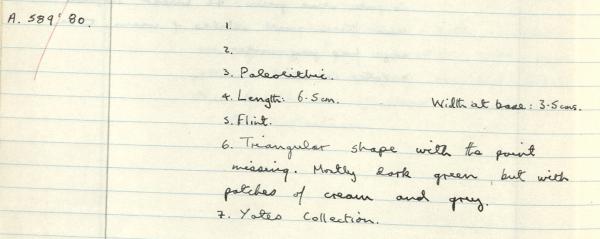 A. 589' 80.
1.
2.
3. Paleolithic.
4. Length: 6.5cm. Width at base: 3.5cms.
5. Flint.
6. Triangular shape with the point
missing. Mostly dark green, but with
patches of cream and grey.
7. Yates Collection.